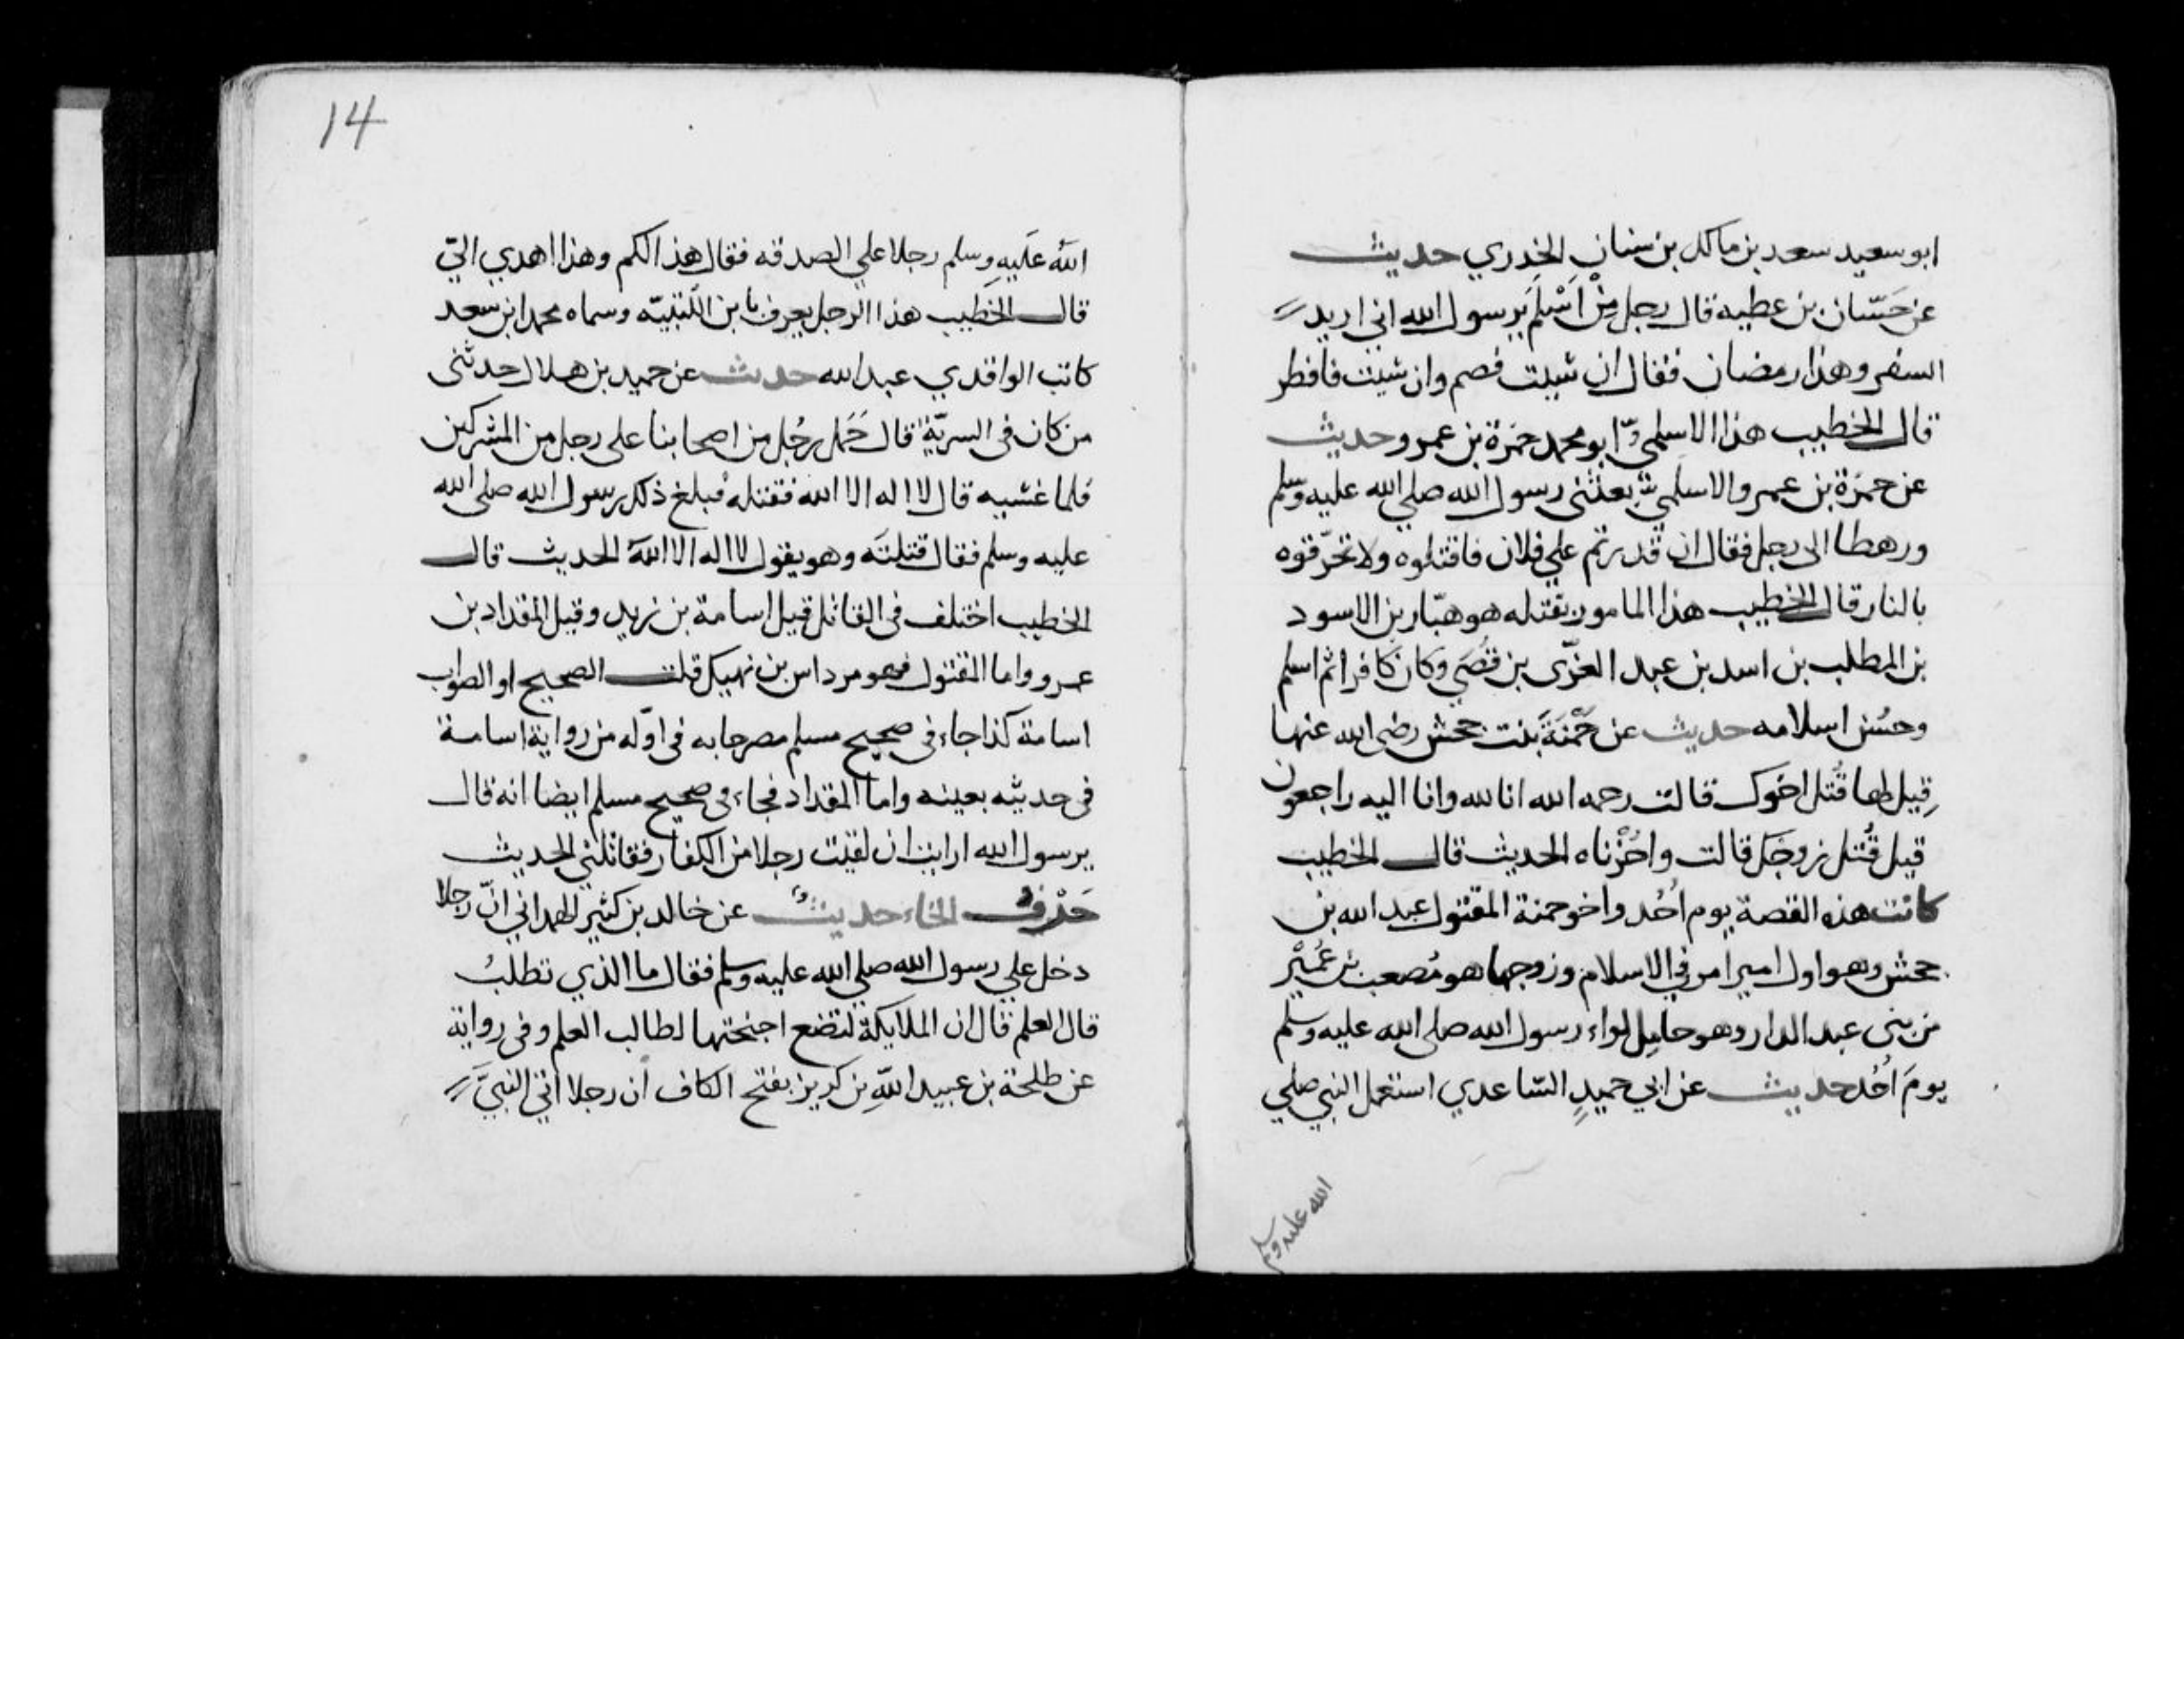 ابو سعيد سعد بن مالك بن سنان الخدري حديث
عن حَسّان بن عطيه قال رجل مِنْ اَسْلَم يرسول الله اني اريد
السفر وهذا رمضان فقال ان شيت فصم وان شيت فافطر
قال الخطيب هذا الاسلمي ابو محمد حمزة بن عمرو حديث
عن حمزة بن عمرو الاسلمي بعثني رسول الله صلي الله عليه وسلم
ورهطا الى رجل فقال ان قدرتم علي فلان فاقتلوه ولا تحرّقوه
بالنار قال الخطيب هذا المامور بقتله هو هبّار بن الاسود
بن المطلب بن اسد بن عبد العزّى بن قُصَي وكان كافرا ثم اسلم
وحسُن اسلامه حديث عن حَمْنَةَ بنت جحش رضى الله عنها
قِيل لها قُتل اخوك قالت رحمه الله انا لله وانا اليه راجعون
قيل قُتل زوجَك قالت واحُزْناه الحديث قال الخطيب
كانت هذه القصة يوم اُحُد واخو حمنة المقتول عبد الله بن
جحش وهو اول امير امر في الاسلام وزوجها هو مُصعب بن عُمَيْر
من بنى عبد الدار وهو حامِل لواء رسول الله صلى الله عليه وسلم
يومَ اُحُد حديث عن ابي حميدٍ السّاعدي استعمل النبي صلي
الله عليه وسلم
14
اللهُ عَلَيهِ وسلم رجلا علي الصدقه فقال هذا لكم وهذا اهدي الىّ
قال الخَطيب هذا الرجل يعرف بابن اللُتبيّه وسماه محمد ابن سعد
كاتب الواقدي عبد الله حديث عن حميد بن هلال حدثنى
من كان فى السريّة قال حَمَل رجُل من اصحابنا على رجل من المشركين
فلما غشيه قال لا اله الا الله فقتله فبلغ ذلك رسول الله صلى الله
عليه وسلم فقال قتلتَه وهو يقول لا اله الا اللهُ الحديث قال
الخطيب اختلف فى القاتل قيل اسامة بن زيد وقيل المقداد بن
عمرو واما المقتول فهو مرداس بن نهيك قلت الصحيح او الصواب
اسامة كذا جاء فى صحيح مسلم مصرحا به فى اوّله من رواية اسامة
فى حديثه بعينه واما المقداد فجاء فى صحيح مسلم ايضا انه قال
يرسول الله ارايت ان لقيت رجلا من الكفار فقاتلني الحديث
حَرْفُ الخاء حديثُ عن خالد بن كثير الهمداني انّ رجلا
دخل علي رسول الله صلي الله عليه وسلم فقال ما الذي تطلبُ
قال العلم قال ان الملايكة لتضع اجنحتها لطالب العلم وفى رواية
عن طلحة بن عبيد اللهِ بن كريز بفتح الكاف ان رجلا اتي النبيَّ